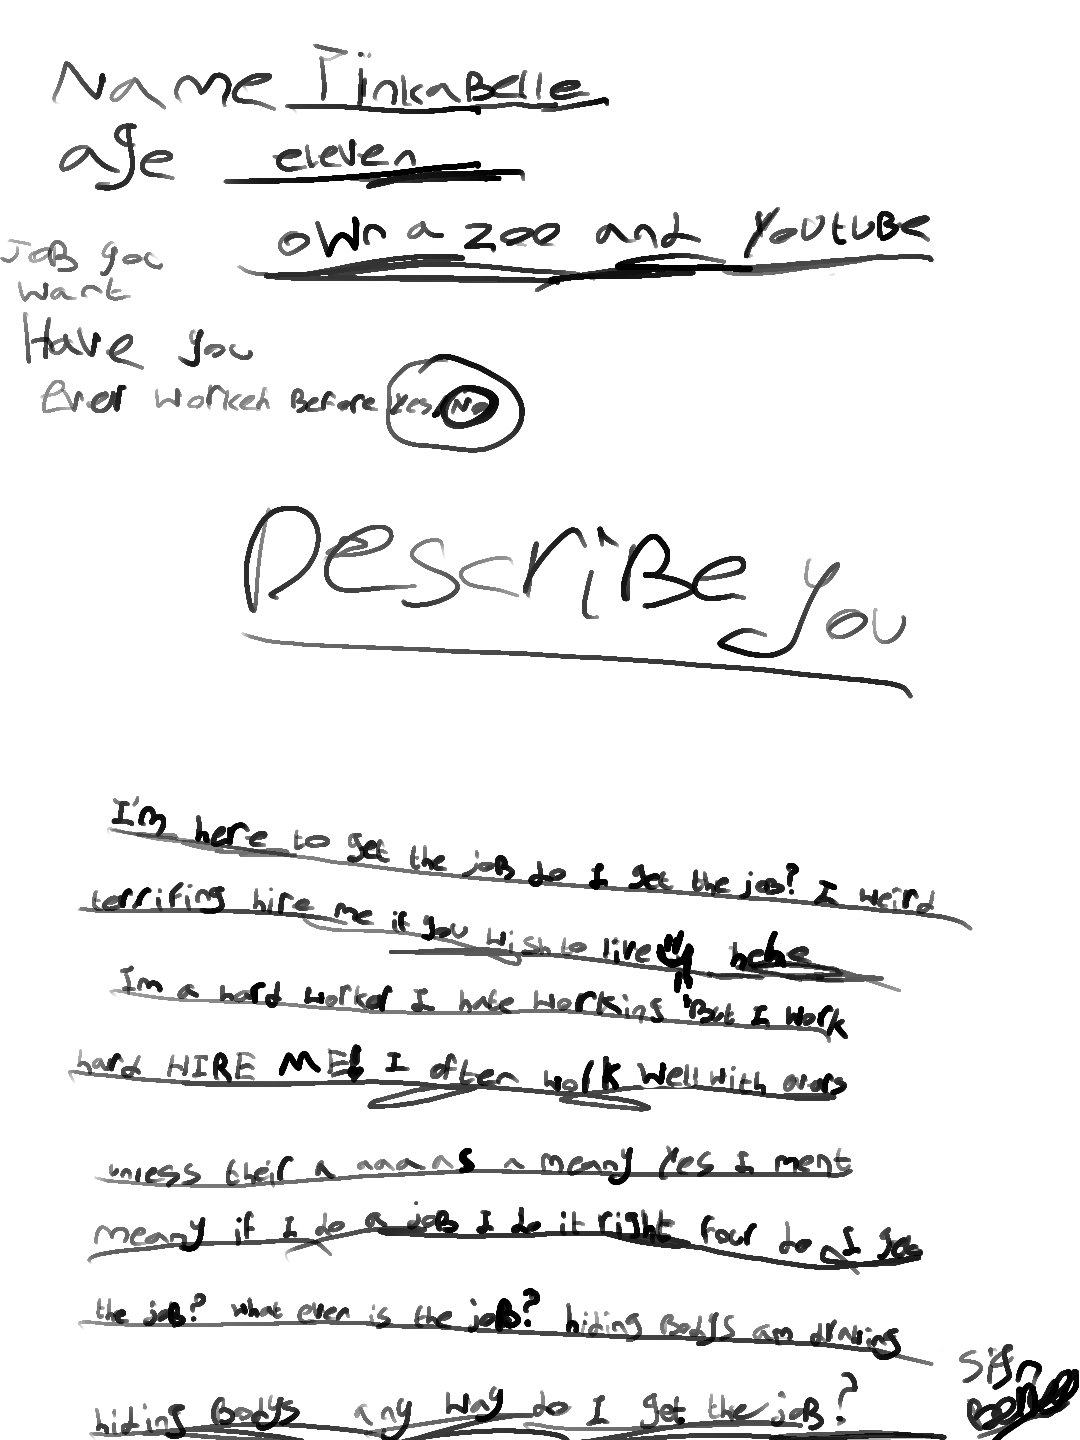 Name TinkaBelle
age eleven
own a zoo and Youtube
JoB you
want
Have you
Ever workeh Before Yes No
Describe you
I'm here to get the joB do I get the joB? I weird
terrifing hire me if you wish to live hehe
I'm a hard worker I hate working But I work
hard HIRE ME! I often work well with ovars
unless their a aaaas a meany Yes I ment
meany if I do a joB I do it right four do I get
the joB? what even is the joB? hiding Bodys am drnking
hiding Bodys any way do I get the joB?
Sign